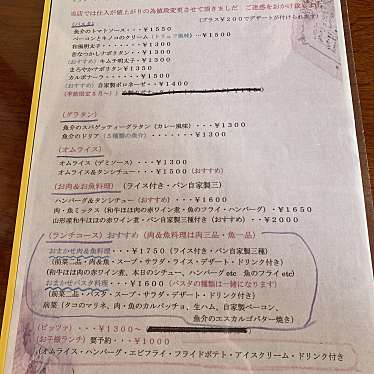 当店では仕入が値上がりの為値段変更させて頂きました ご迷惑をおかけ
(パスタ) (プラス¥200でデザートが付けられます)
魚介のトマトソース・・・¥1550
ベーコンとキノコのクリーム(トリュフ風味)・・¥1500
和風明太子・・・¥1300
きなつかしナポリタン・・¥1300
(おすすめ) キムチ明太子・・¥1300
まろやかナポリタン¥1350
カルボナーラ・・・¥1500
(おすすめ) 自家製ボロネーゼ・・¥1400
(グラタン)
魚介のスパゲッティーグラタン(カレー風味)・・・¥1300
魚介のドリア(5種類の魚介)・・¥1300
(オムライス)
オムライス(デミソース)・・・¥1300
オムライス&タンシチュー・・・¥1500 (おすすめ)
(お肉&お魚料理) (ライス付き・パン自家製三)
ハンバーグ&タンシチュー(おすすめ)・・・¥1600
肉・魚ミックス(和牛ほほ肉の赤ワイン煮・魚のフライ・ハンバーグ)・・¥1650
山形産和牛ほほ肉の赤ワイン煮・パン自家製三種付き(おすすめ)・・¥2000
(ランチコース) おすすめ (肉&魚料理は肉三品・魚一品)
おまかせ肉&魚料理・・・¥1750 (ライス付き・パン自家製三種)
(前菜二品・肉&魚・スープ・サラダ・ライス・デザート・ドリンク付き)
(和牛ほほ肉の赤ワイン煮、本日のシチュー、ハンバーグetc 魚のフライetc)
おまかせパスタ料理・・・¥1600 (パスタの種類は一緒になります)
(前菜二品・パスタ・スープ・サラダ・デザート・ドリンク付き)
前菜(タコのマリネ、肉・魚のカルパッチョ、生ハム、自家製ベーコン、
魚介のエスカルゴバター焼き)
(ピッツァ) ¥1300～
(お子様ランチ) 要予約・・・¥1000
(オムライス・ハンバーグ・エビフライ・フライドポテト・アイスクリーム・ドリンク付き